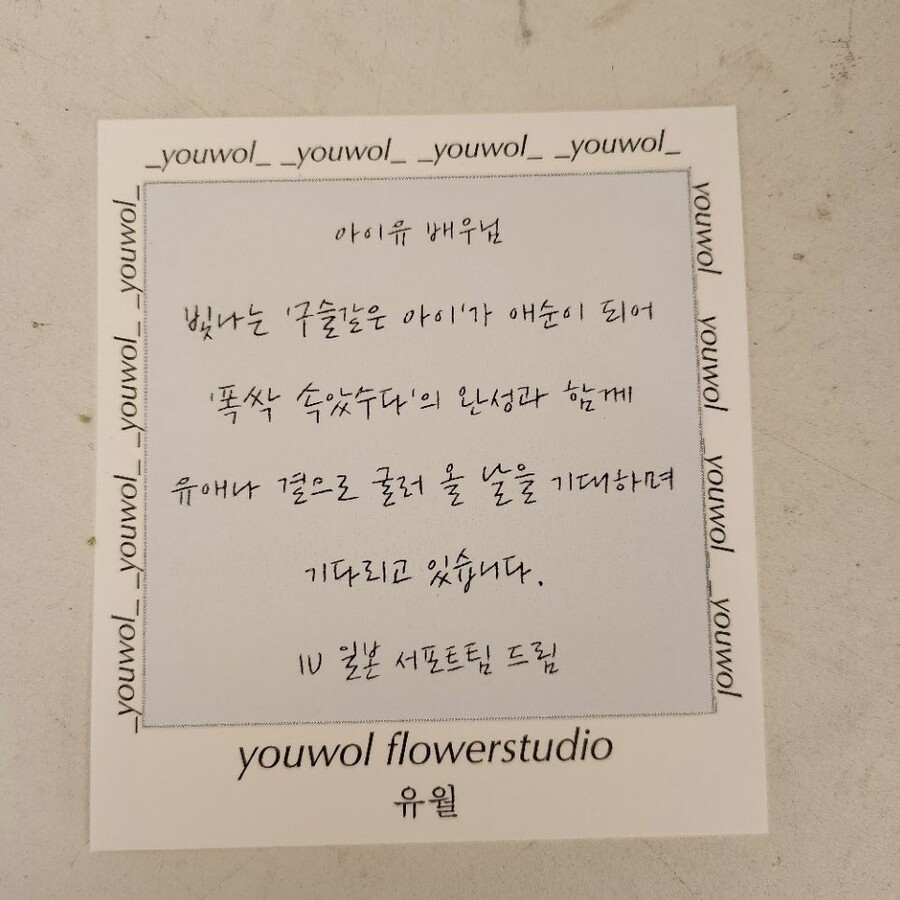 _youwol_ _youwol_ _youwol_ _youwol_
_youwol_ _youwol_ _youwol_ _youwol_
아이유 배우님
빛나는 '구슬같은 아이'가 애순이 되어
'폭싹 속았수다'의 완성과 함께
유애나 곁으로 굴러 올 날을 기대하며
기다리고 있습니다.
IU 일본 서포트팀 드림
youwol youwol _youwol _youwol
youwol flowerstudio
유월